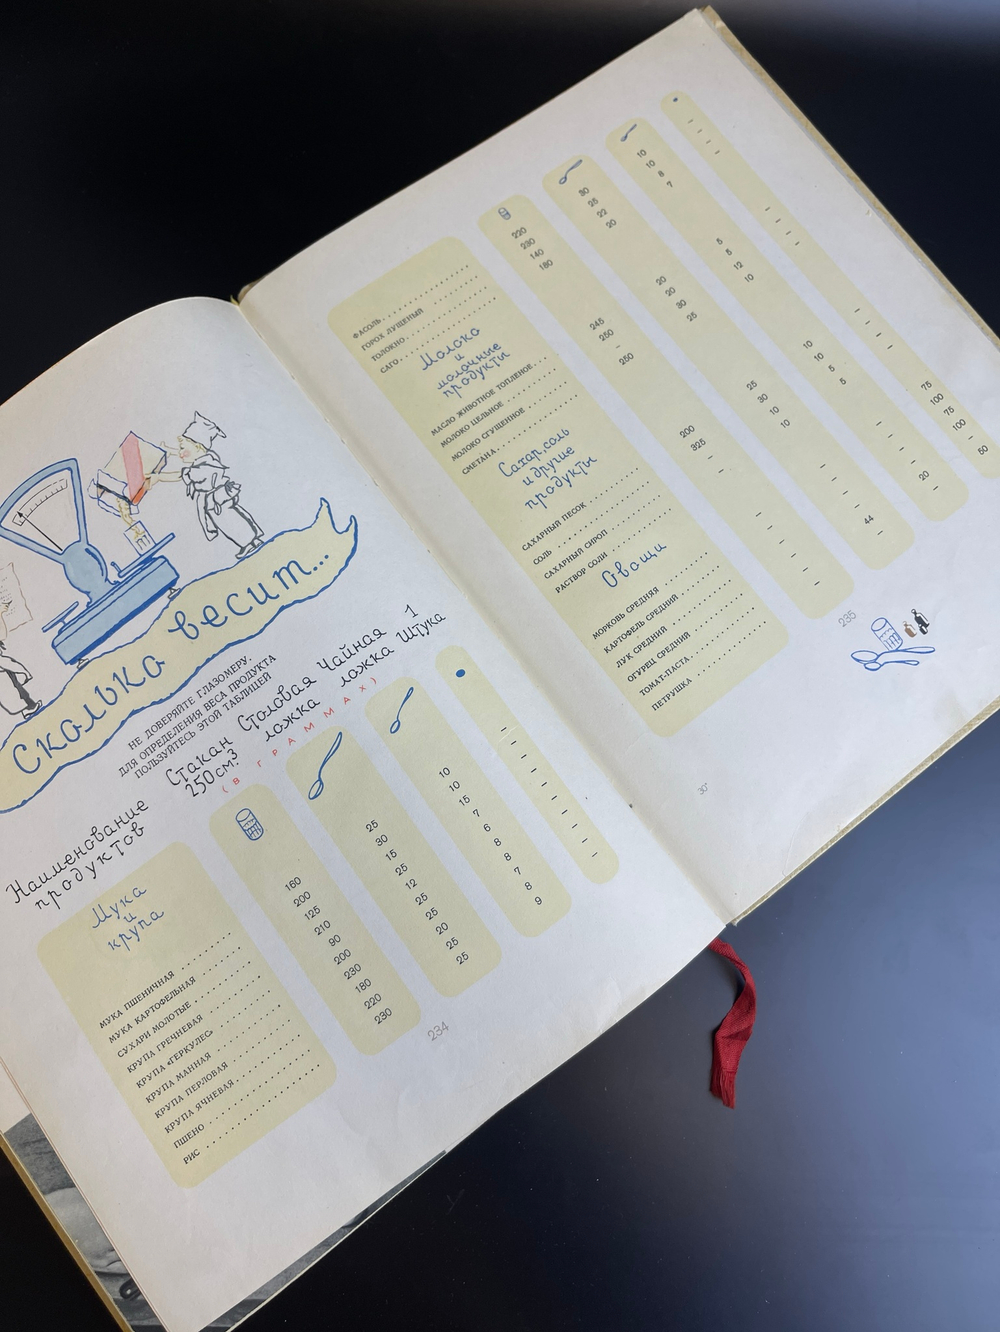 Сколько весит...
НЕ ДОВЕРЯЙТЕ ГЛАЗОМЕРУ,
ДЛЯ ОПРЕДЕЛЕНИЯ ВЕСА ПРОДУКТА
ПОЛЬЗУЙТЕСЬ ЭТОЙ ТАБЛИЦЕЙ
Наименование продуктов Стакан 250 см³ Столовая ложка Чайная ложка 1 штука
(В ГРАММАХ)
Мука
и
крупа
МУКА ПШЕНИЧНАЯ 160 25 10 –
МУКА КАРТОФЕЛЬНАЯ 200 30 10 –
СУХАРИ МОЛОТЫЕ 125 15 15 –
КРУПА ГРЕЧНЕВАЯ 210 25 7 –
КРУПА «ГЕРКУЛЕС» 90 12 6 –
КРУПА МАННАЯ 200 25 8 –
КРУПА ПЕРЛОВАЯ 230 25 8 –
КРУПА ЯЧНЕВАЯ 180 20 7 –
ПШЕНО 220 25 8 –
РИС 230 25 9 –
234
ФАСОЛЬ 220 30 10 –
ГОРОХ ЛУЩЕНЫЙ 230 25 10 –
ТОЛОКНО 140 22 8 –
САГО 180 20 7 –
Молоко
и
молочные
продукты
МАСЛО ЖИВОТНОЕ ТОПЛЕНОЕ 245 20 5 –
МОЛОКО ЦЕЛЬНОЕ 250 20 5 –
МОЛОКО СГУЩЕННОЕ – 30 12 –
СМЕТАНА 250 25 10 –
Сахар, соль
и другие
продукты
САХАРНЫЙ ПЕСОК 200 25 10 –
СОЛЬ 325 30 10 –
САХАРНЫЙ СИРОП – 10 5 –
РАСТВОР СОЛИ – 10 5 –
Овощи
МОРКОВЬ СРЕДНЯЯ – – – 75
КАРТОФЕЛЬ СРЕДНИЙ – – – 100
ЛУК СРЕДНИЙ – – – 75
ОГУРЕЦ СРЕДНИЙ – – – 100
ТОМАТ-ПАСТА – 44 20 –
ПЕТРУШКА – – – 50
235
30*